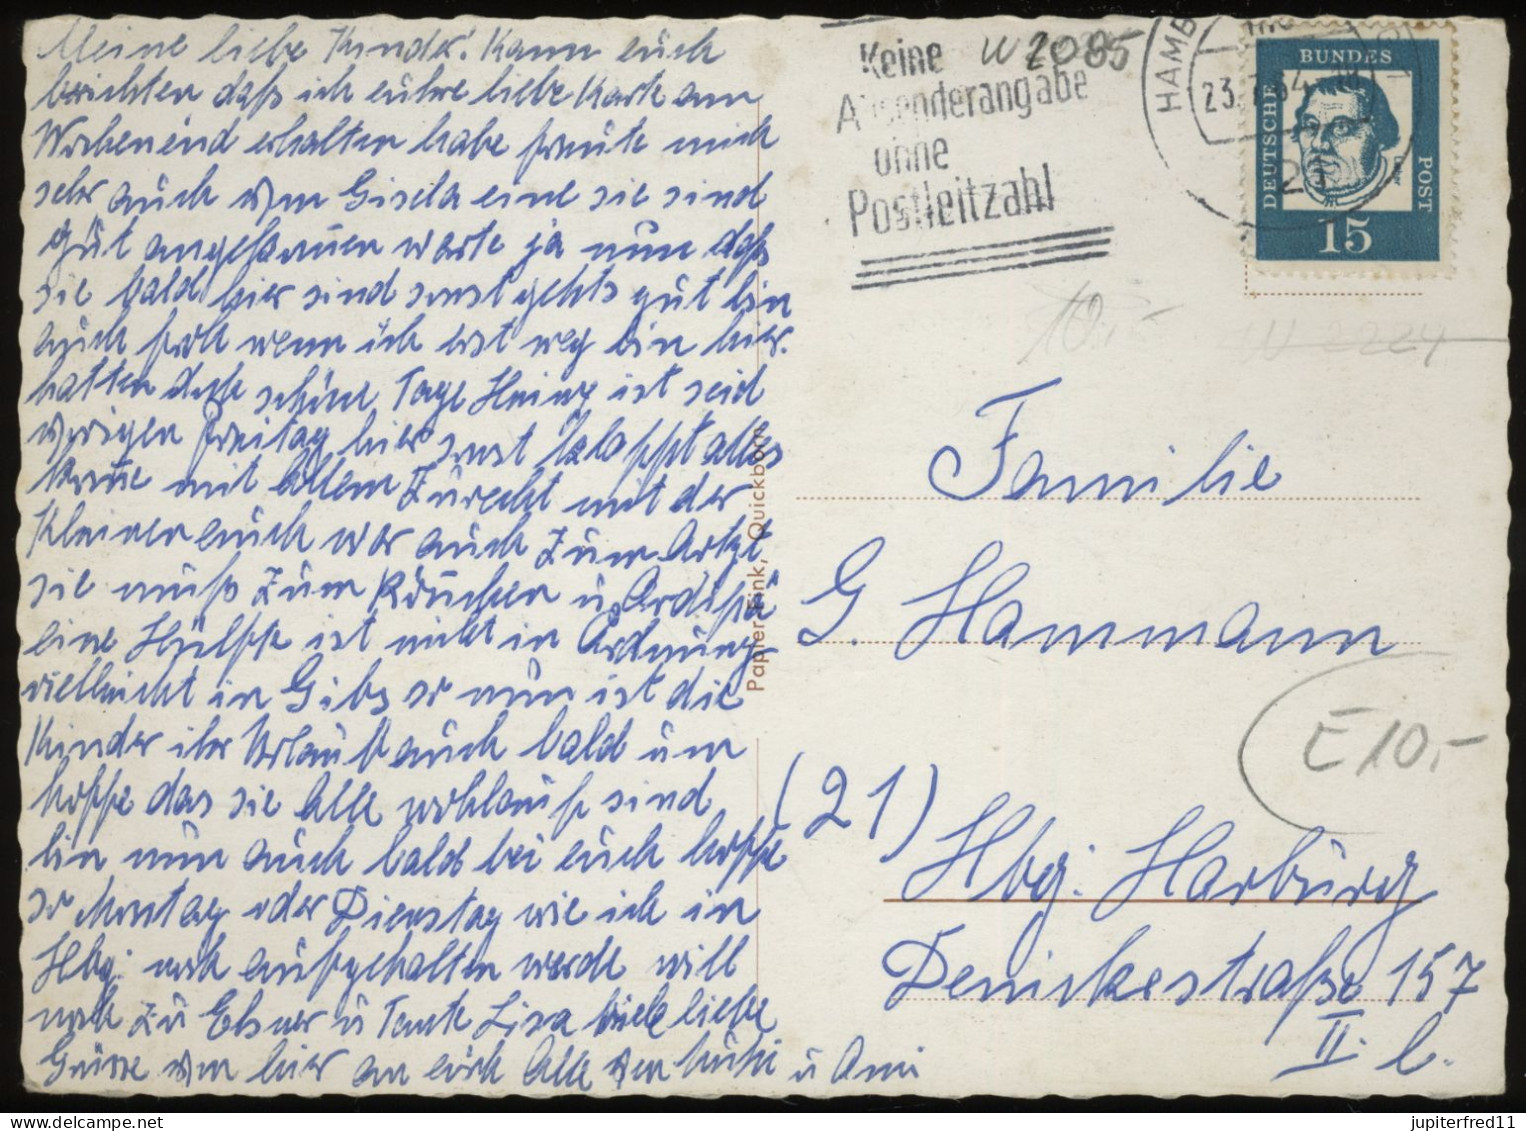 Meine liebe Kinder! Kann euch
berichten daß ich eure liebe Karte am
Wochenend erhalten habe freute mich
sehr auch von Gisela eine sie sind
gut angekommen warte ja nun daß
sie bald hier sind sonst gehts gut bin
auch froh wenn ich erst weg bin hier.
hatten doch schöne Tage Heinz ist seid
vorigen Freitag hier sonst klappt alles
komme mit allem Zurecht mit der
Kleinen auch war auch zum Arzt
sie muß zum Röntgen u. Ordipä
eine Hüfte ist nicht in Ordnung
vielleicht in Gibs so nun ist die
Kinder ihr Urlaub auch bald um
hoffe das sie Alle wohlauf sind
bin nun auch bald bei euch hoffe
so Montag oder Dienstag wie ich in
Hbg. noch aufgehalten werde will
noch zu Elsner u Tante Lisa viele liebe
Grüsse von hier an euch Alle von Muti u Omi
Keine
Absenderangabe
ohne
Postleitzahl
W 2085
HAMB
23. 64
21
DEUTSCHE BUNDES POST
Luther
15
10,-
W 2224
Familie
G. Hammann
E 10,-
(21) Hbg. Harburg
Denickestraße 157
II. l.
Papier-Fink, Quickborn
jupiterfred11